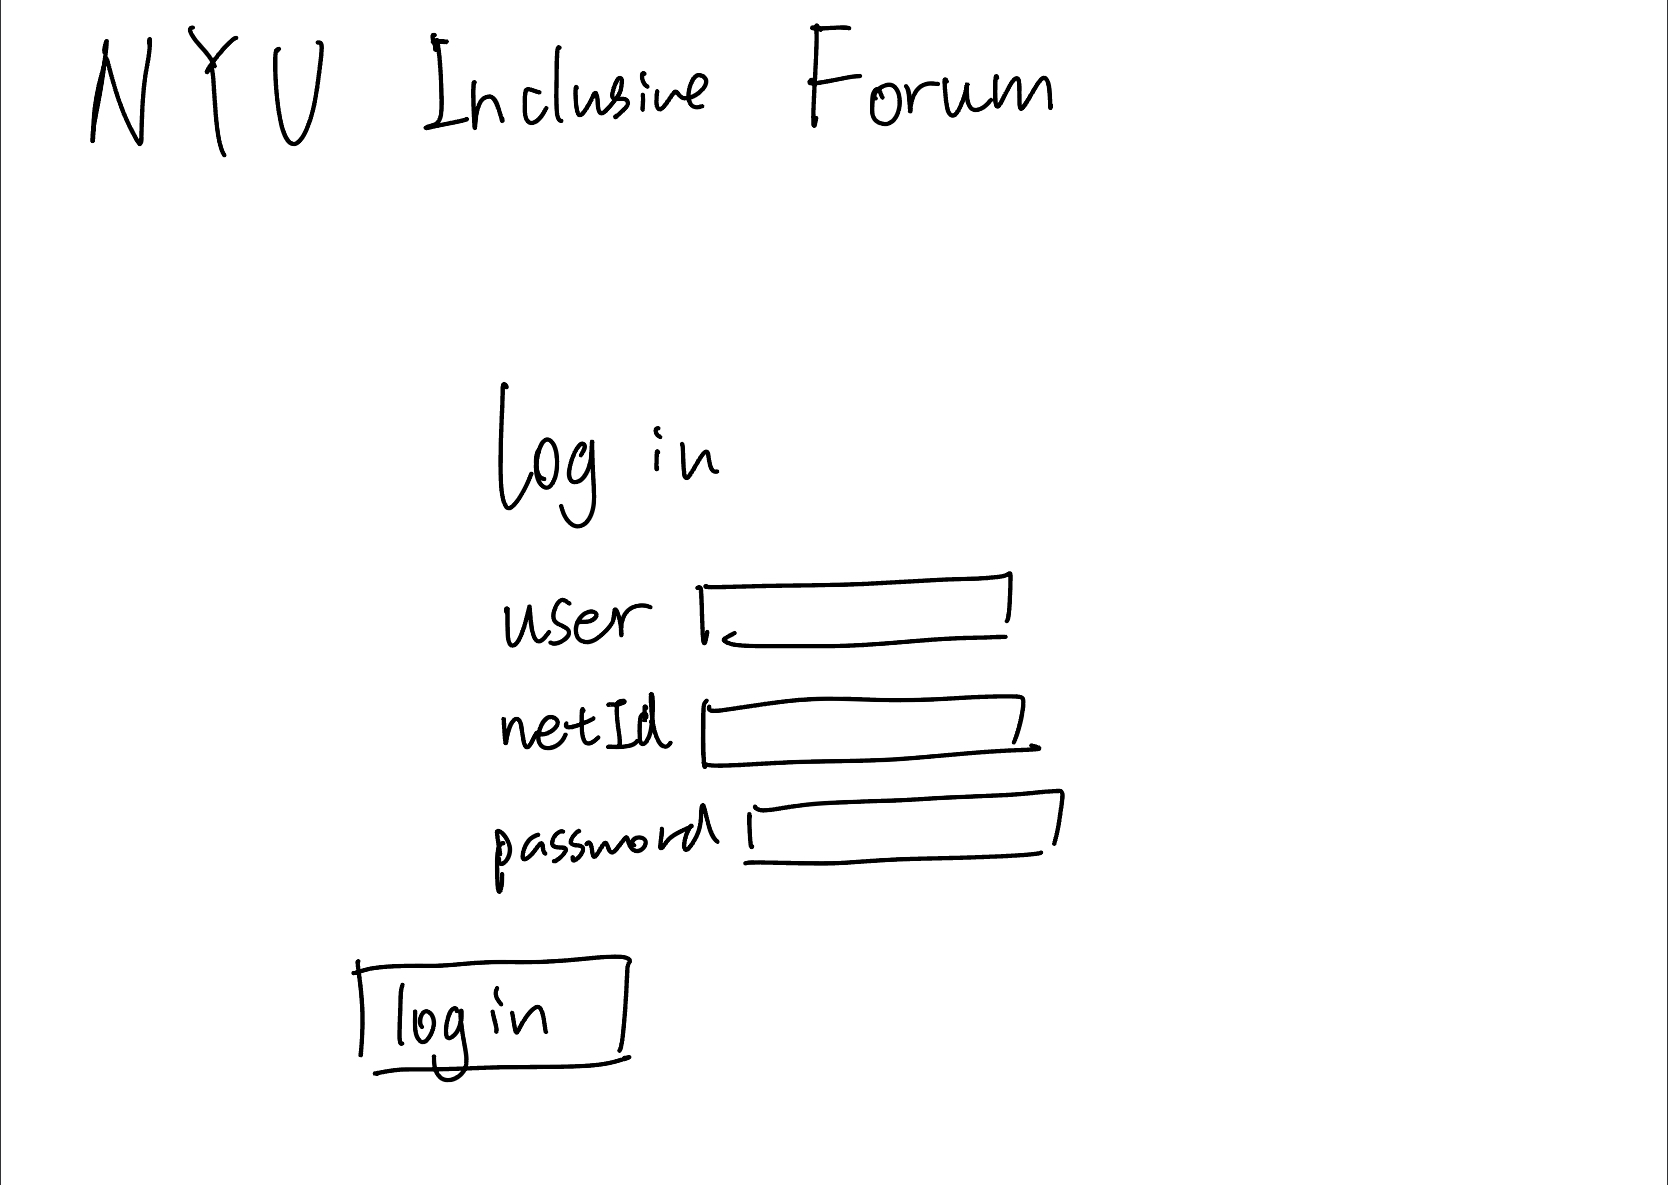 NYU Inclusive Forum
Log in
user
netId
password
log in